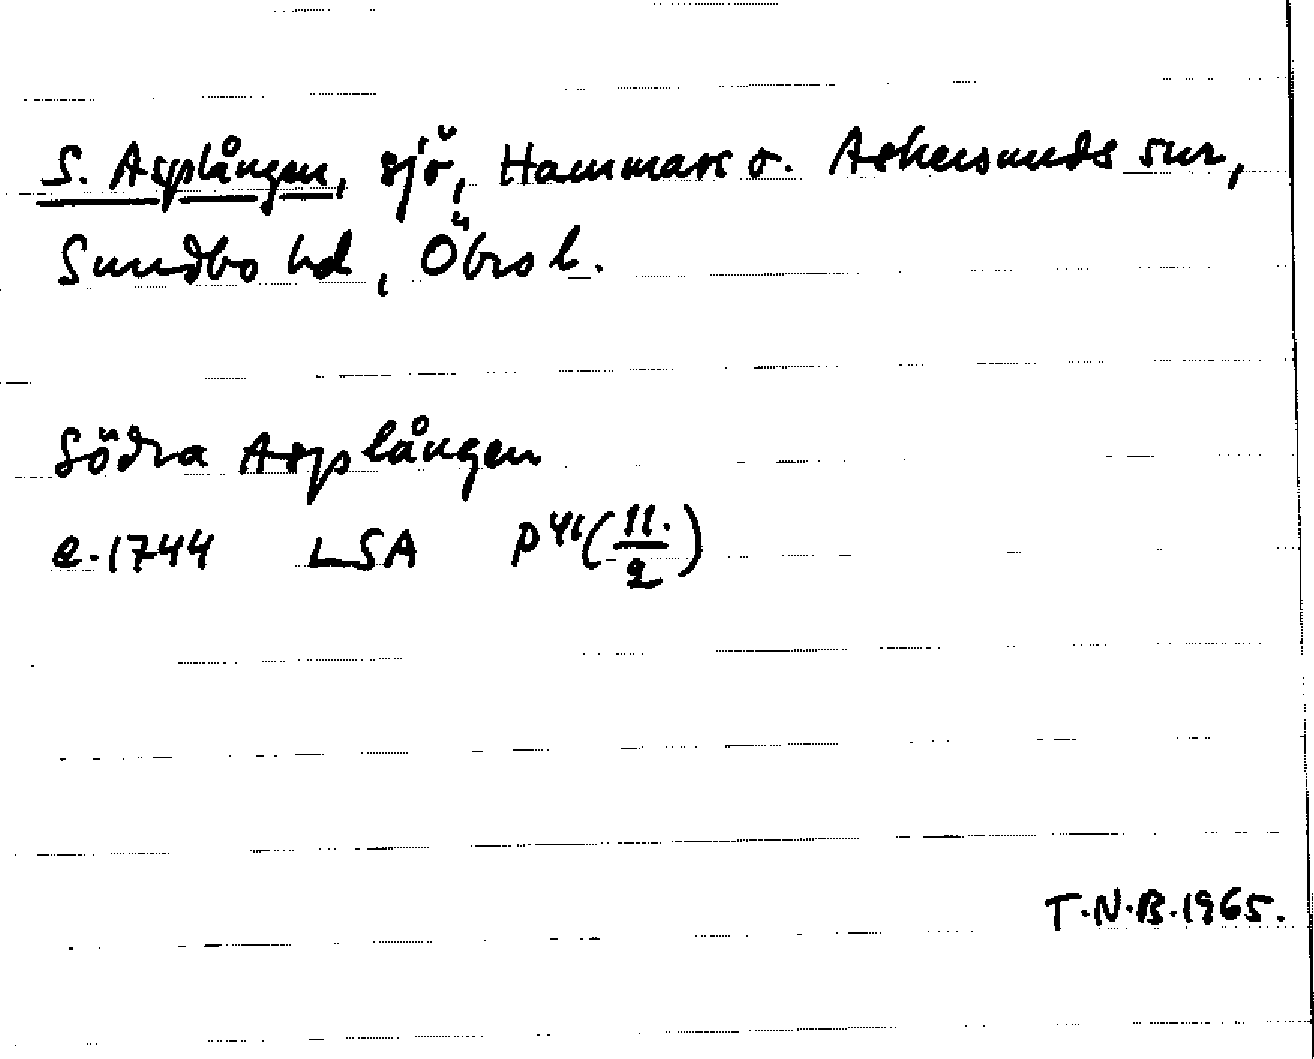 S. Asplången, sjö, Hammars o. Askersunds snr,
Sundbo hd, Öbro l.
Södra Asplången
e. 1744 LSA P41(11./2)
T.N.B. 1965.